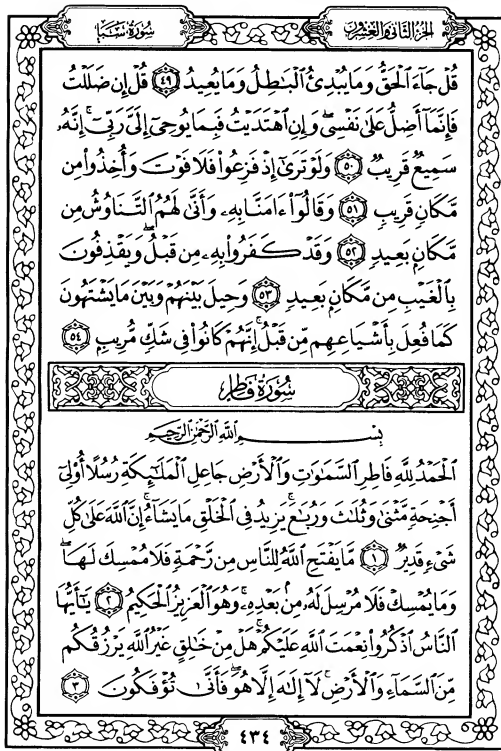 سُورَةُ سَبَإٍ
الجُزءُ الثَّانِي وَالعِشرُونَ
قُلْ جَآءَ ٱلْحَقُّ وَمَا يُبْدِئُ ٱلْبَٰطِلُ وَمَا يُعِيدُ ٤٩ قُلْ إِن ضَلَلْتُ
فَإِنَّمَآ أَضِلُّ عَلَىٰ نَفْسِى ۖ وَإِنِ ٱهْتَدَيْتُ فَبِمَا يُوحِىٓ إِلَىَّ رَبِّىٓ ۚ إِنَّهُۥ
سَمِيعٌ قَرِيبٌ ٥٠ وَلَوْ تَرَىٰٓ إِذْ فَزِعُوا۟ فَلَا فَوْتَ وَأُخِذُوا۟ مِن
مَّكَانٍ قَرِيبٍ ٥١ وَقَالُوٓا۟ ءَامَنَّا بِهِۦ وَأَنَّىٰ لَهُمُ ٱلتَّنَاوُشُ مِن
مَّكَانٍۭ بَعِيدٍ ٥٢ وَقَدْ كَفَرُوا۟ بِهِۦ مِن قَبْلُ ۖ وَيَقْذِفُونَ
بِٱلْغَيْبِ مِن مَّكَانٍۭ بَعِيدٍ ٥٣ وَحِيلَ بَيْنَهُمْ وَبَيْنَ مَا يَشْتَهُونَ
كَمَا فُعِلَ بِأَشْيَاعِهِم مِّن قَبْلُ ۚ إِنَّهُمْ كَانُوا۟ فِى شَكٍّ مُّرِيبٍۭ ٥٤
سُورَةُ فَاطِرٍ
بِسْمِ ٱللَّهِ ٱلرَّحْمَٰنِ ٱلرَّحِيمِ
ٱلْحَمْدُ لِلَّهِ فَاطِرِ ٱلسَّمَٰوَٰتِ وَٱلْأَرْضِ جَاعِلِ ٱلْمَلَٰٓئِكَةِ رُسُلًا أُو۟لِىٓ
أَجْنِحَةٍ مَّثْنَىٰ وَثُلَٰثَ وَرُبَٰعَ ۚ يَزِيدُ فِى ٱلْخَلْقِ مَا يَشَآءُ ۚ إِنَّ ٱللَّهَ عَلَىٰ كُلِّ
شَىْءٍ قَدِيرٌ ١ مَّا يَفْتَحِ ٱللَّهُ لِلنَّاسِ مِن رَّحْمَةٍ فَلَا مُمْسِكَ لَهَا ۖ
وَمَا يُمْسِكْ فَلَا مُرْسِلَ لَهُۥ مِنۢ بَعْدِهِۦ ۚ وَهُوَ ٱلْعَزِيزُ ٱلْحَكِيمُ ٢ يَٰٓأَيُّهَا
ٱلنَّاسُ ٱذْكُرُوا۟ نِعْمَتَ ٱللَّهِ عَلَيْكُمْ ۚ هَلْ مِنْ خَٰلِقٍ غَيْرُ ٱللَّهِ يَرْزُقُكُم
مِّنَ ٱلسَّمَآءِ وَٱلْأَرْضِ ۚ لَآ إِلَٰهَ إِلَّا هُوَ ۖ فَأَنَّىٰ تُؤْفَكُونَ ٣
٤٣٤